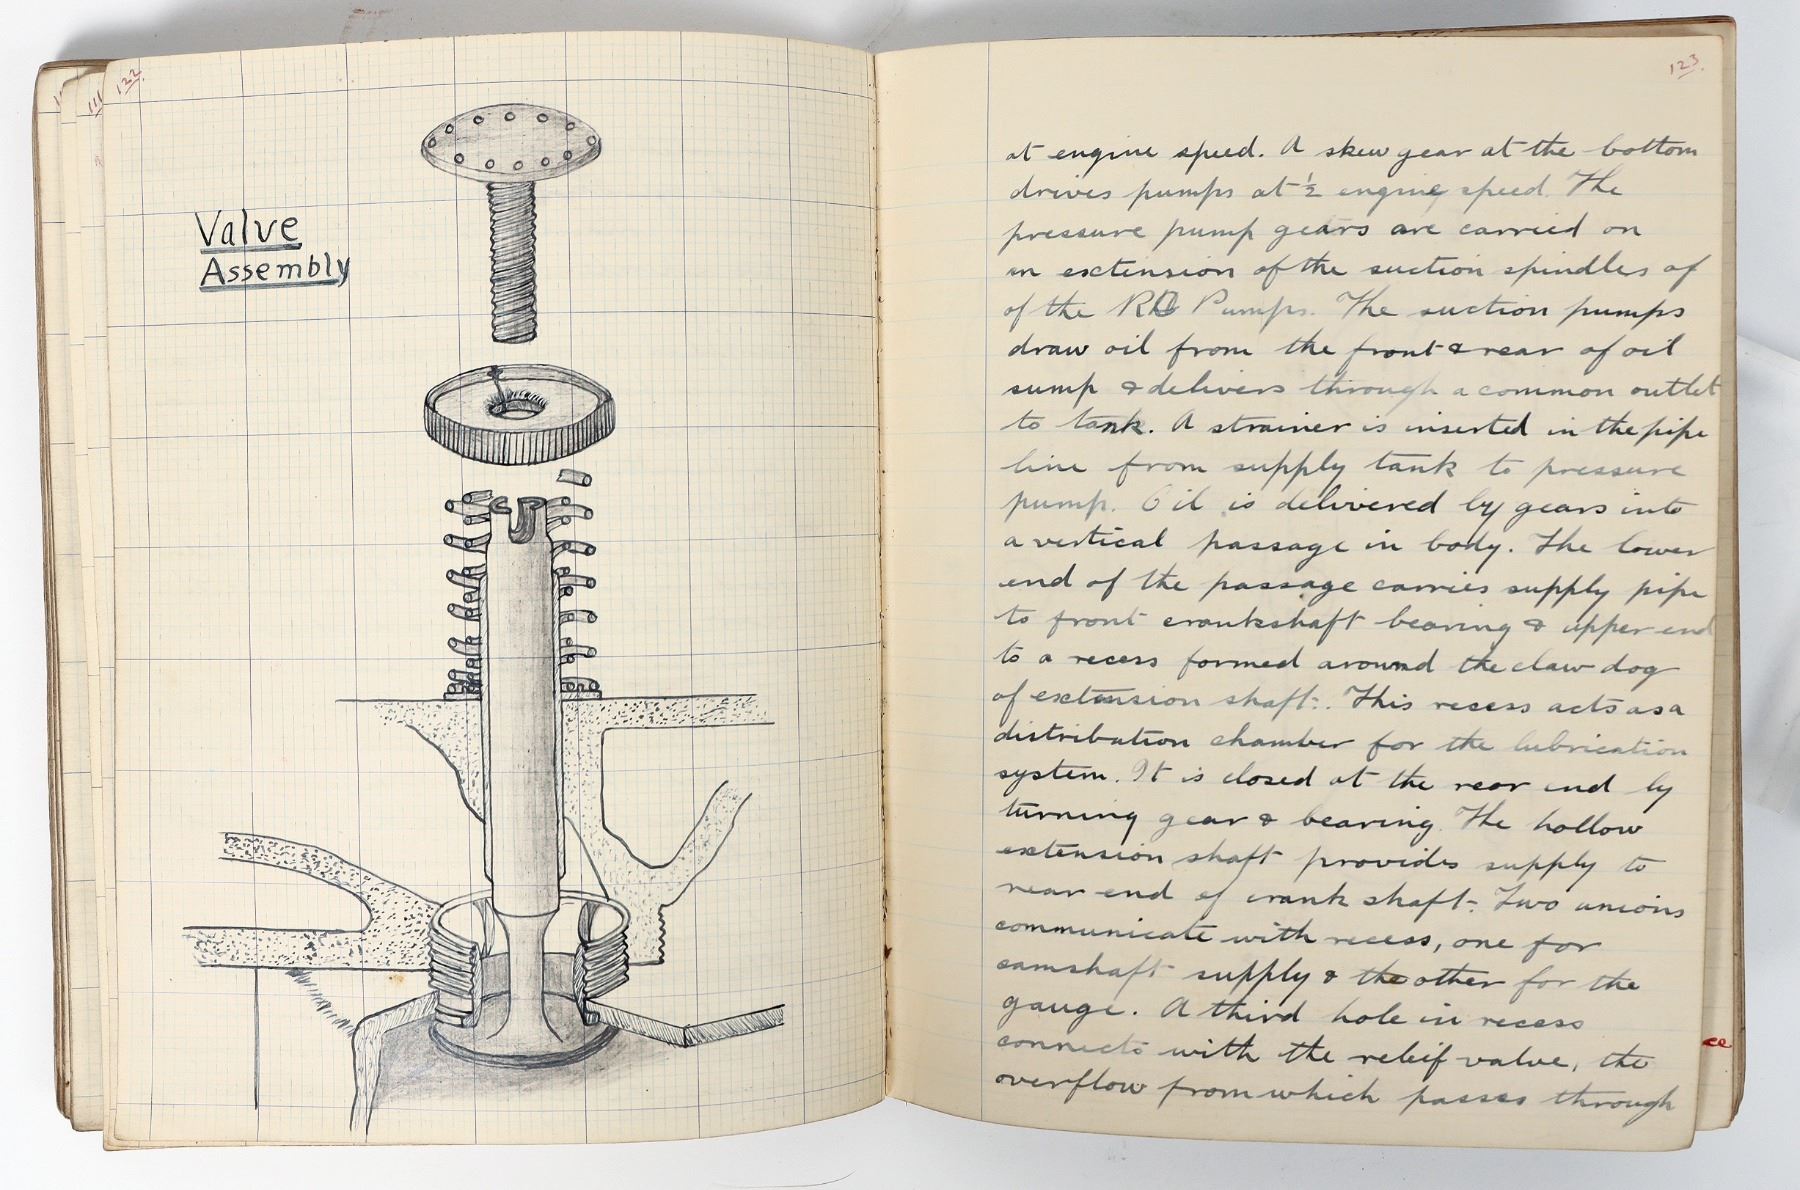 111
122.
Valve
Assembly
123.
at engine speed. A skew gear at the bottom
drives pumps at ½ engine speed. The
pressure pump gears are carried on
an extension of the suction spindles of
of the Pumps. The suction pumps
draw oil from the front & rear of oil
sump & delivers through a common outlet
to tank. A strainer is inserted in the pipe
line from supply tank to pressure
pump. Oil is delivered by gears into
a vertical passage in body. The lower
end of the passage carries supply pipe
to front crankshaft bearing & upper end
to a recess formed around the claw dog
of extension shaft. This recess acts as a
distribution chamber for the lubrication
system. It is closed at the rear end by
turning gear & bearing. The hollow
extension shaft provides supply to
rear end of crank shaft. Two unions
communicate with recess, one for
camshaft supply & the other for the
gauge. A third hole in recess
connects with the releif valve, the
overflow from which passes through
ce